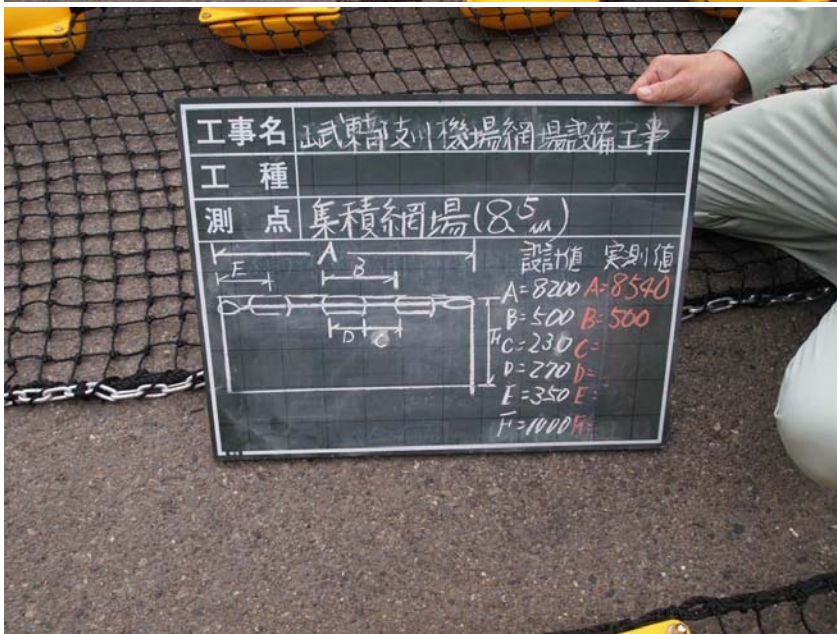 工事名 山武東部支川機場網場設備工事
工種
測点 集積網場(8.5m)
A
E B
D C
F
設計値 実測値
A=8200 A=8540
B=500 B=500
C=230 C=
D=270 D=
E=350 E=
F=1000 F=